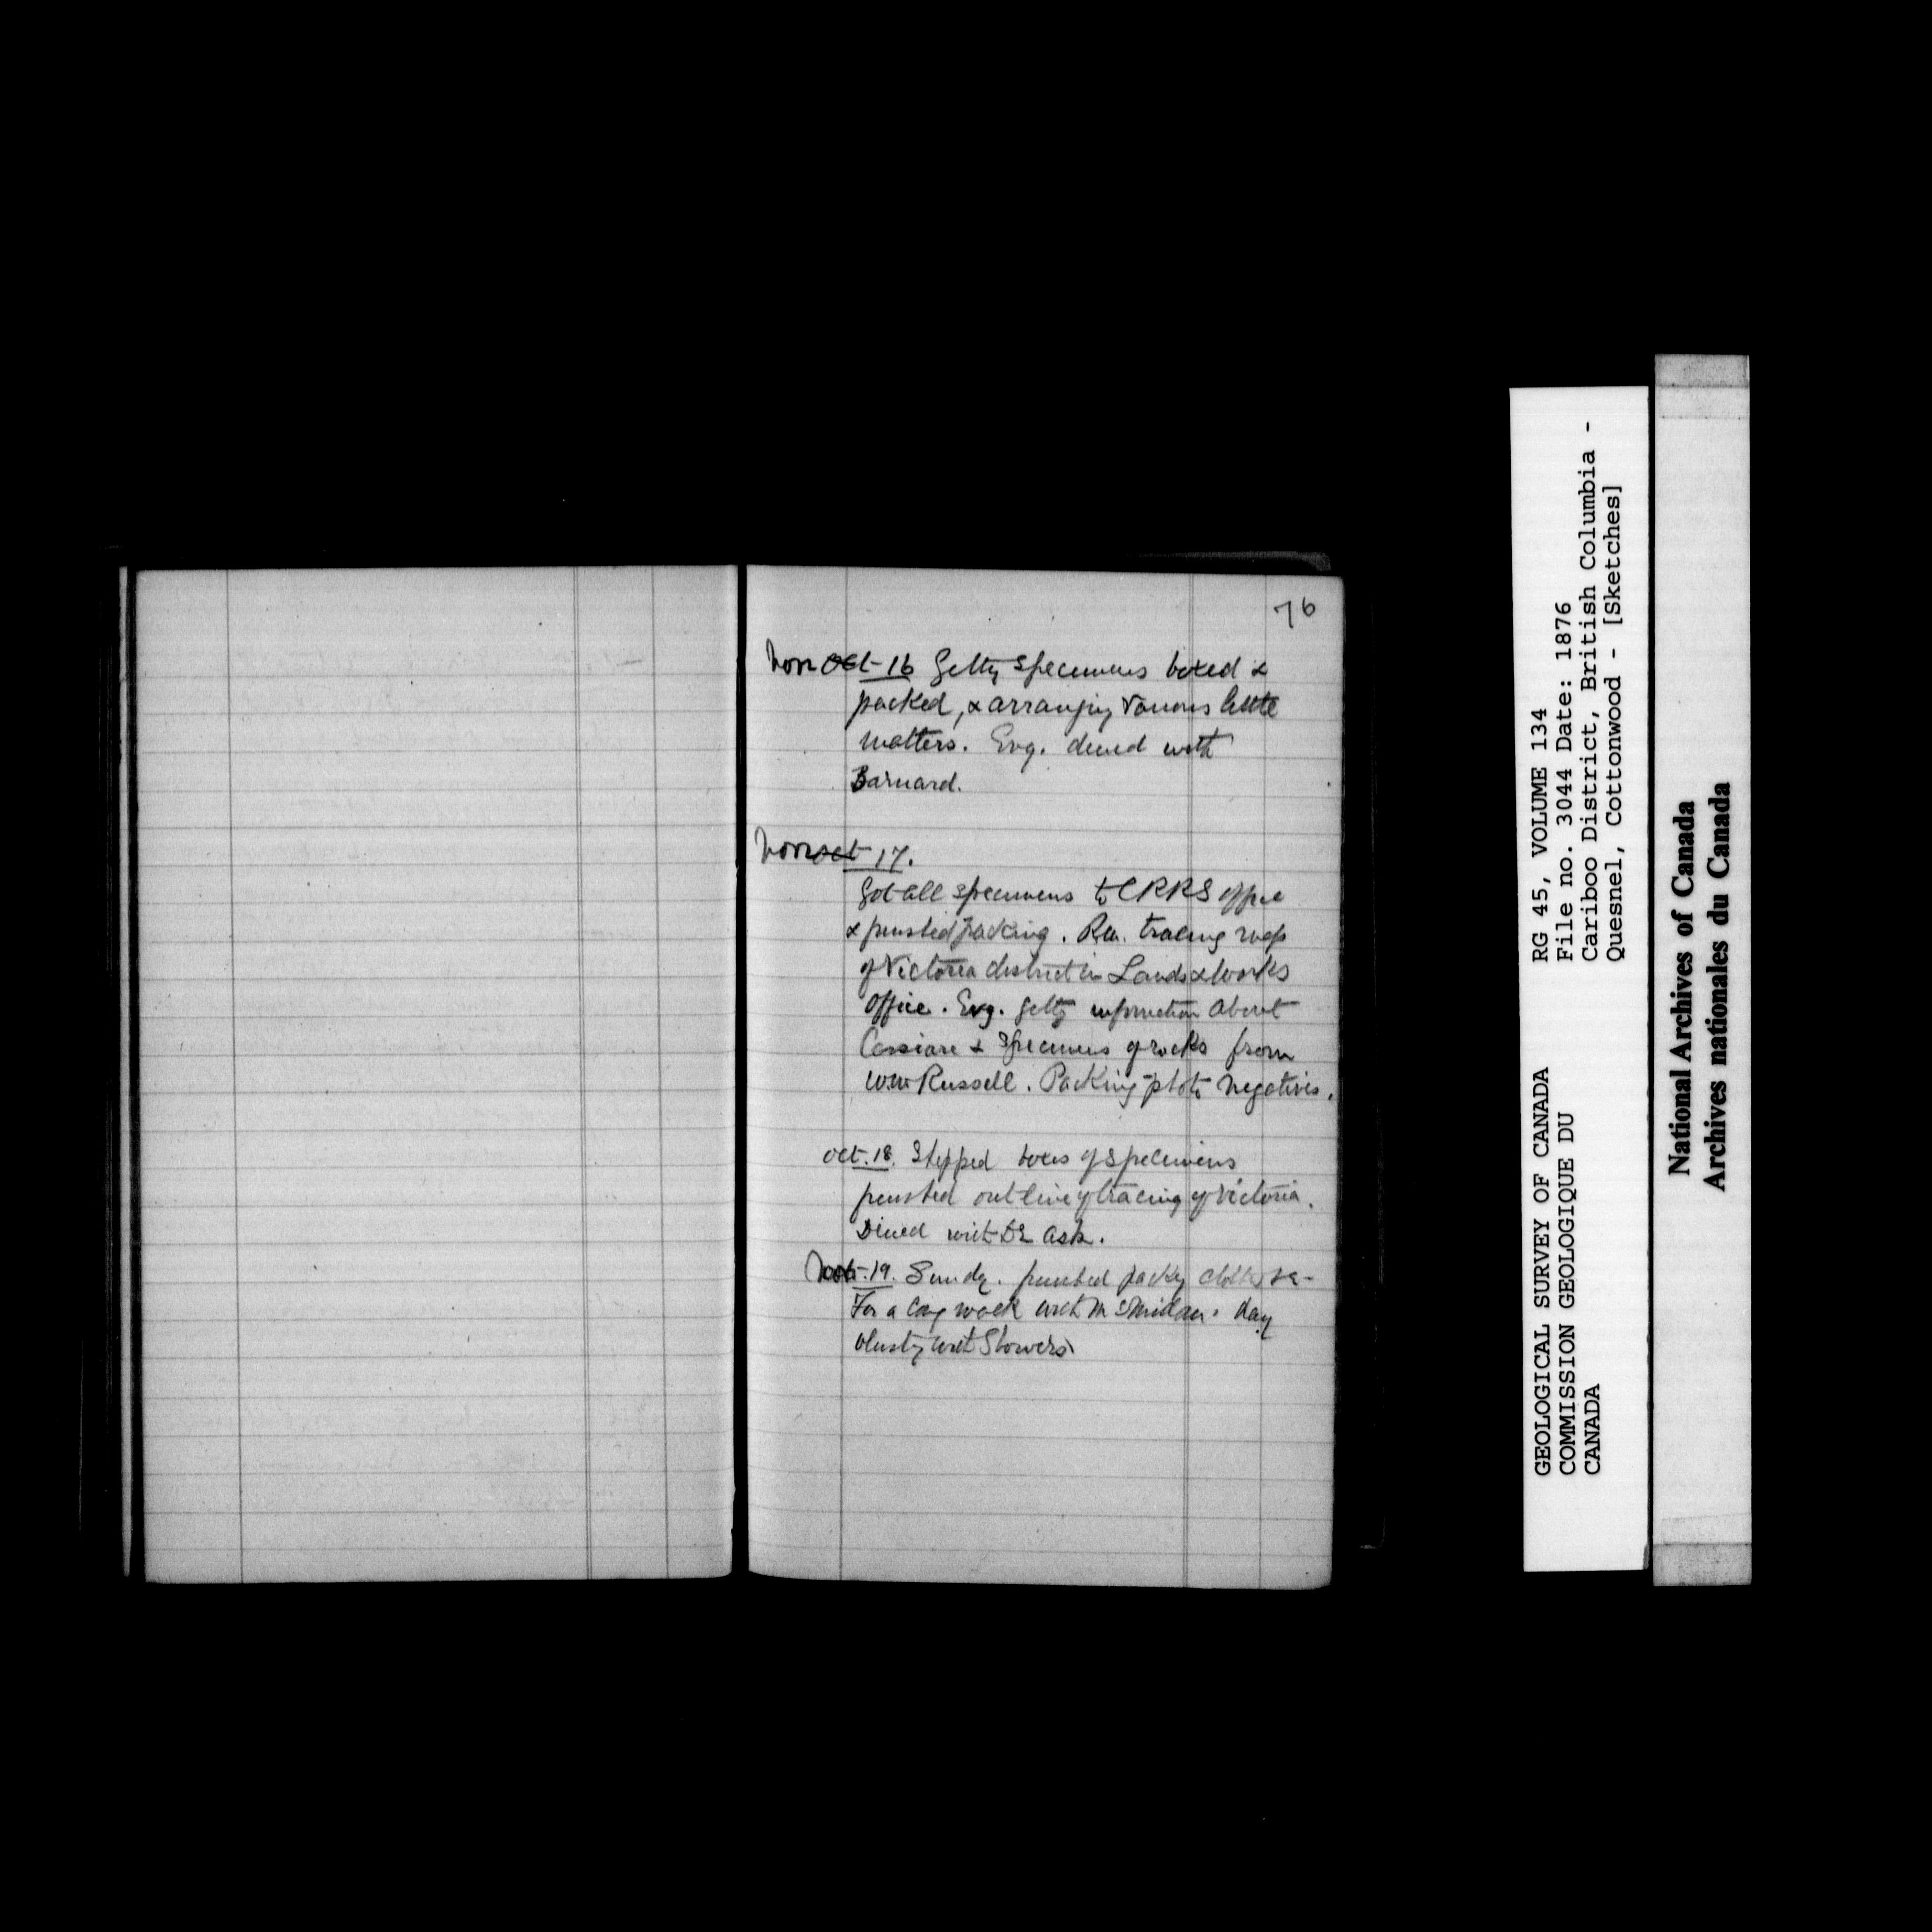 76
Nov Oct 16 Getty specimens boxed &
packed, & arranging various little
matters. Evg. dined with
Barnard.
Nov Oct 17.
Got all specimens to CPRS office
& finished packing. tracing map
of Victoria district in Lands & Works
Office. Evg. getty information about
Cassiare & specimens of rocks from
W.W. Russell. Packing photo negatives.
Oct. 18. Shipped boxes of specimens
finished outline of tracing of Victoria.
Dined with Dr Ash.
Nov Oct. 19. Sunday. finished packg clothes &c-
For a long walk with day
blusty with Showers
GEOLOGICAL SURVEY OF CANADA
COMMISSION GEOLOGIQUE DU
CANADA
RG 45, VOLUME 134
File no. 3044 Date: 1876
Cariboo District, British Columbia -
Quesnel, Cottonwood - [Sketches]
National Archives of Canada
Archives nationales du Canada